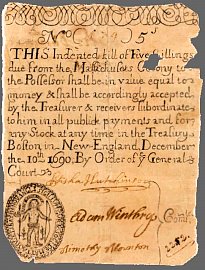 No 5s
THIS Indented Bill of Five Shillings
due from the Massachusets Colony to
the Possessor shall be in value equal to
money & shall be accordingly accepted
by the Treasurer & receivers subordinate
to him in all publick payments and for
any Stock at any time in the Treasury
Boston in New-England, December
the 10th 1690. By Order of ye General
Court
Elisha Hutchinson
Adam Winthrop
Timothy Thornton